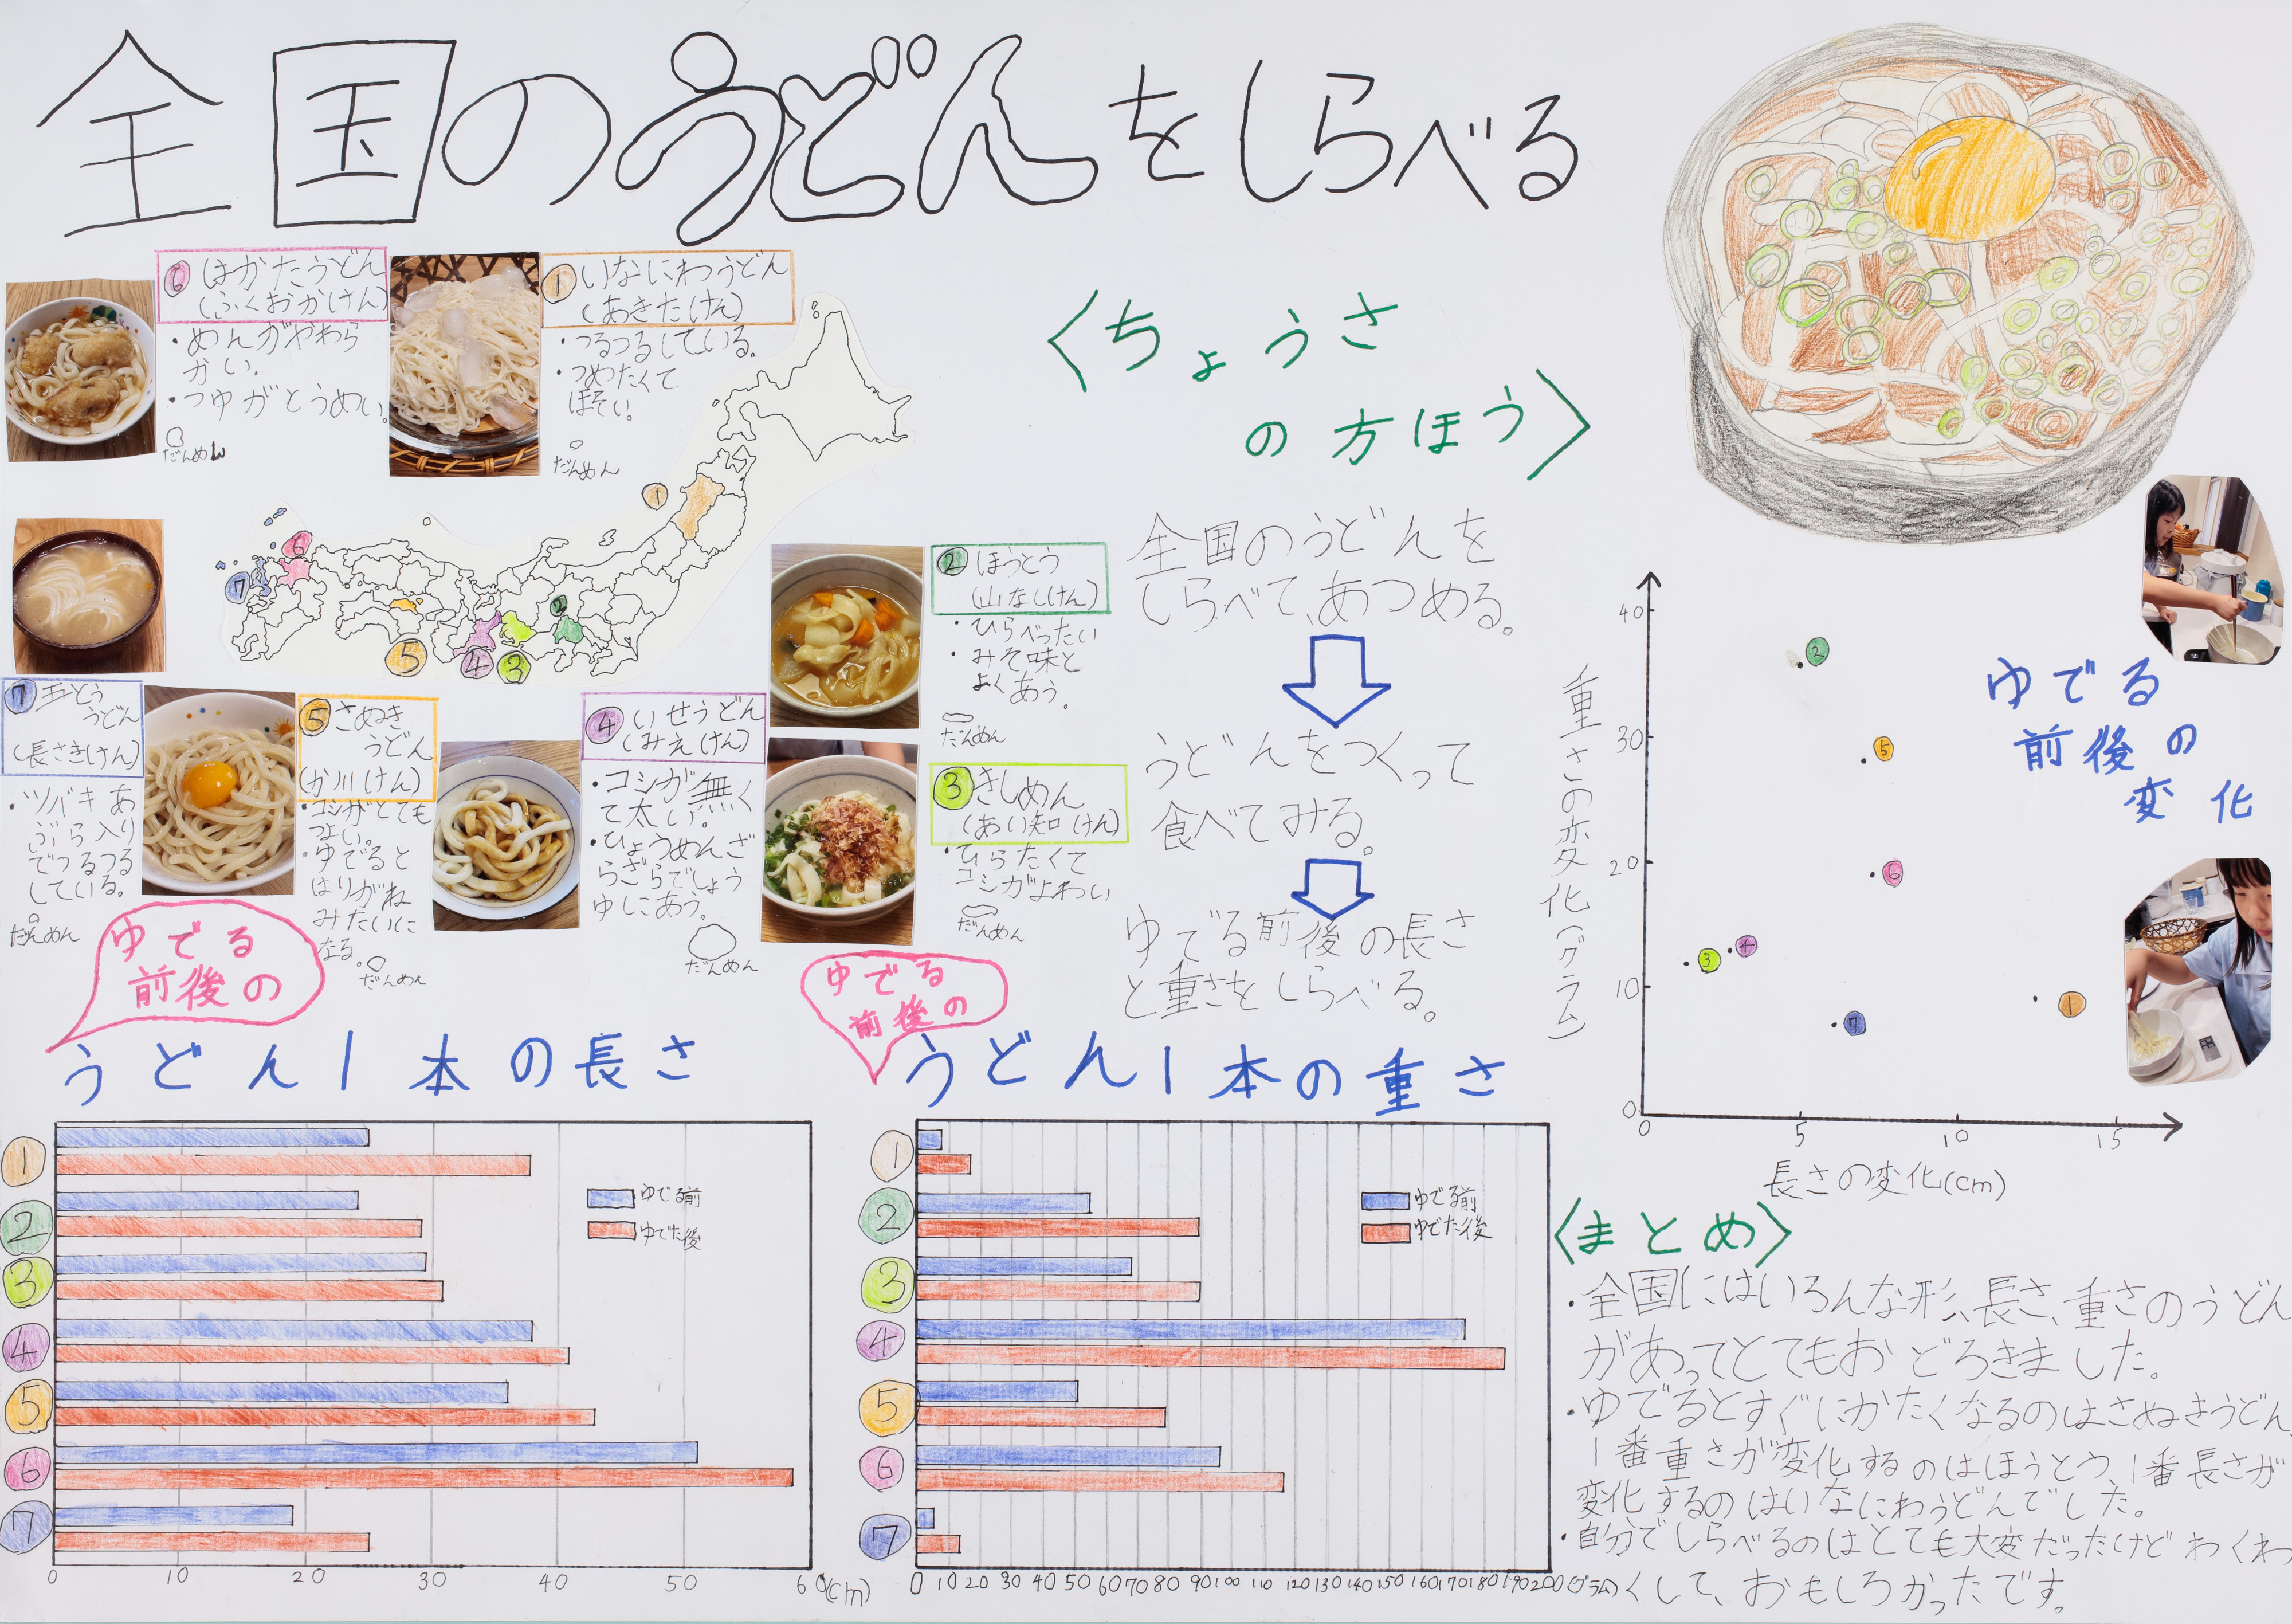 全国のうどんをしらべる
⑥ はかたうどん
(ふくおかけん)
・めんがやわら
かい。
・つゆがとうめい。
だんめん
① いなにわうどん
(あきたけん)
・つるつるしている。
・つめたくて
ほそい。
だんめん
1
6
7
2
5
4
3
② ほうとう
(山なしけん)
・ひらべったい
・みそ味と
よくあう。
だんめん
⑦ 五とう
うどん
(長さきけん)
・ツバキあ
ぶら入り
でつるつる
している。
だんめん
⑤ さぬき
うどん
(か川けん)
・コシがとても
つよい。
・ゆでると
はりがね
みたいに
なる。
だんめん
④ いせうどん
(みえけん)
・コシが無く
て太い。
・ひょうめんざ
らざらでしょう
ゆにあう。
だんめん
③ きしめん
(あい知けん)
・ひらたくて
コシがよわい
だんめん
〈ちょうさ
の方ほう〉
全国のうどんを
しらべて、あつめる。
うどんをつくって
食べてみる。
ゆでる前後の長さ
と重さをしらべる。
ゆでる
前後の
変化
重さの変化(グラム)
40
30
20
10
0
2
5
6
3
4
7
1
0 5 10 15
長さの変化(cm)
ゆでる
前後の
うどん1本の長さ
1
2
3
4
5
6
7
ゆでる前
ゆでた後
0 10 20 30 40 50 60(cm)
ゆでる
前後の
うどん1本の重さ
1
2
3
4
5
6
7
ゆでる前
ゆでた後
0 10 20 30 40 50 60 70 80 90 100 110 120 130 140 150 160 170 180 190 200(グラム)
〈まとめ〉
・全国にはいろんな形、長さ、重さのうどん
があってとてもおどろきました。
・ゆでるとすぐにかたくなるのはさぬきうどん、
1番重さが変化するのはほうとう、1番長さが
変化するのはいなにわうどんでした。
・自分でしらべるのはとても大変だったけどわくわ
くして、おもしろかったです。